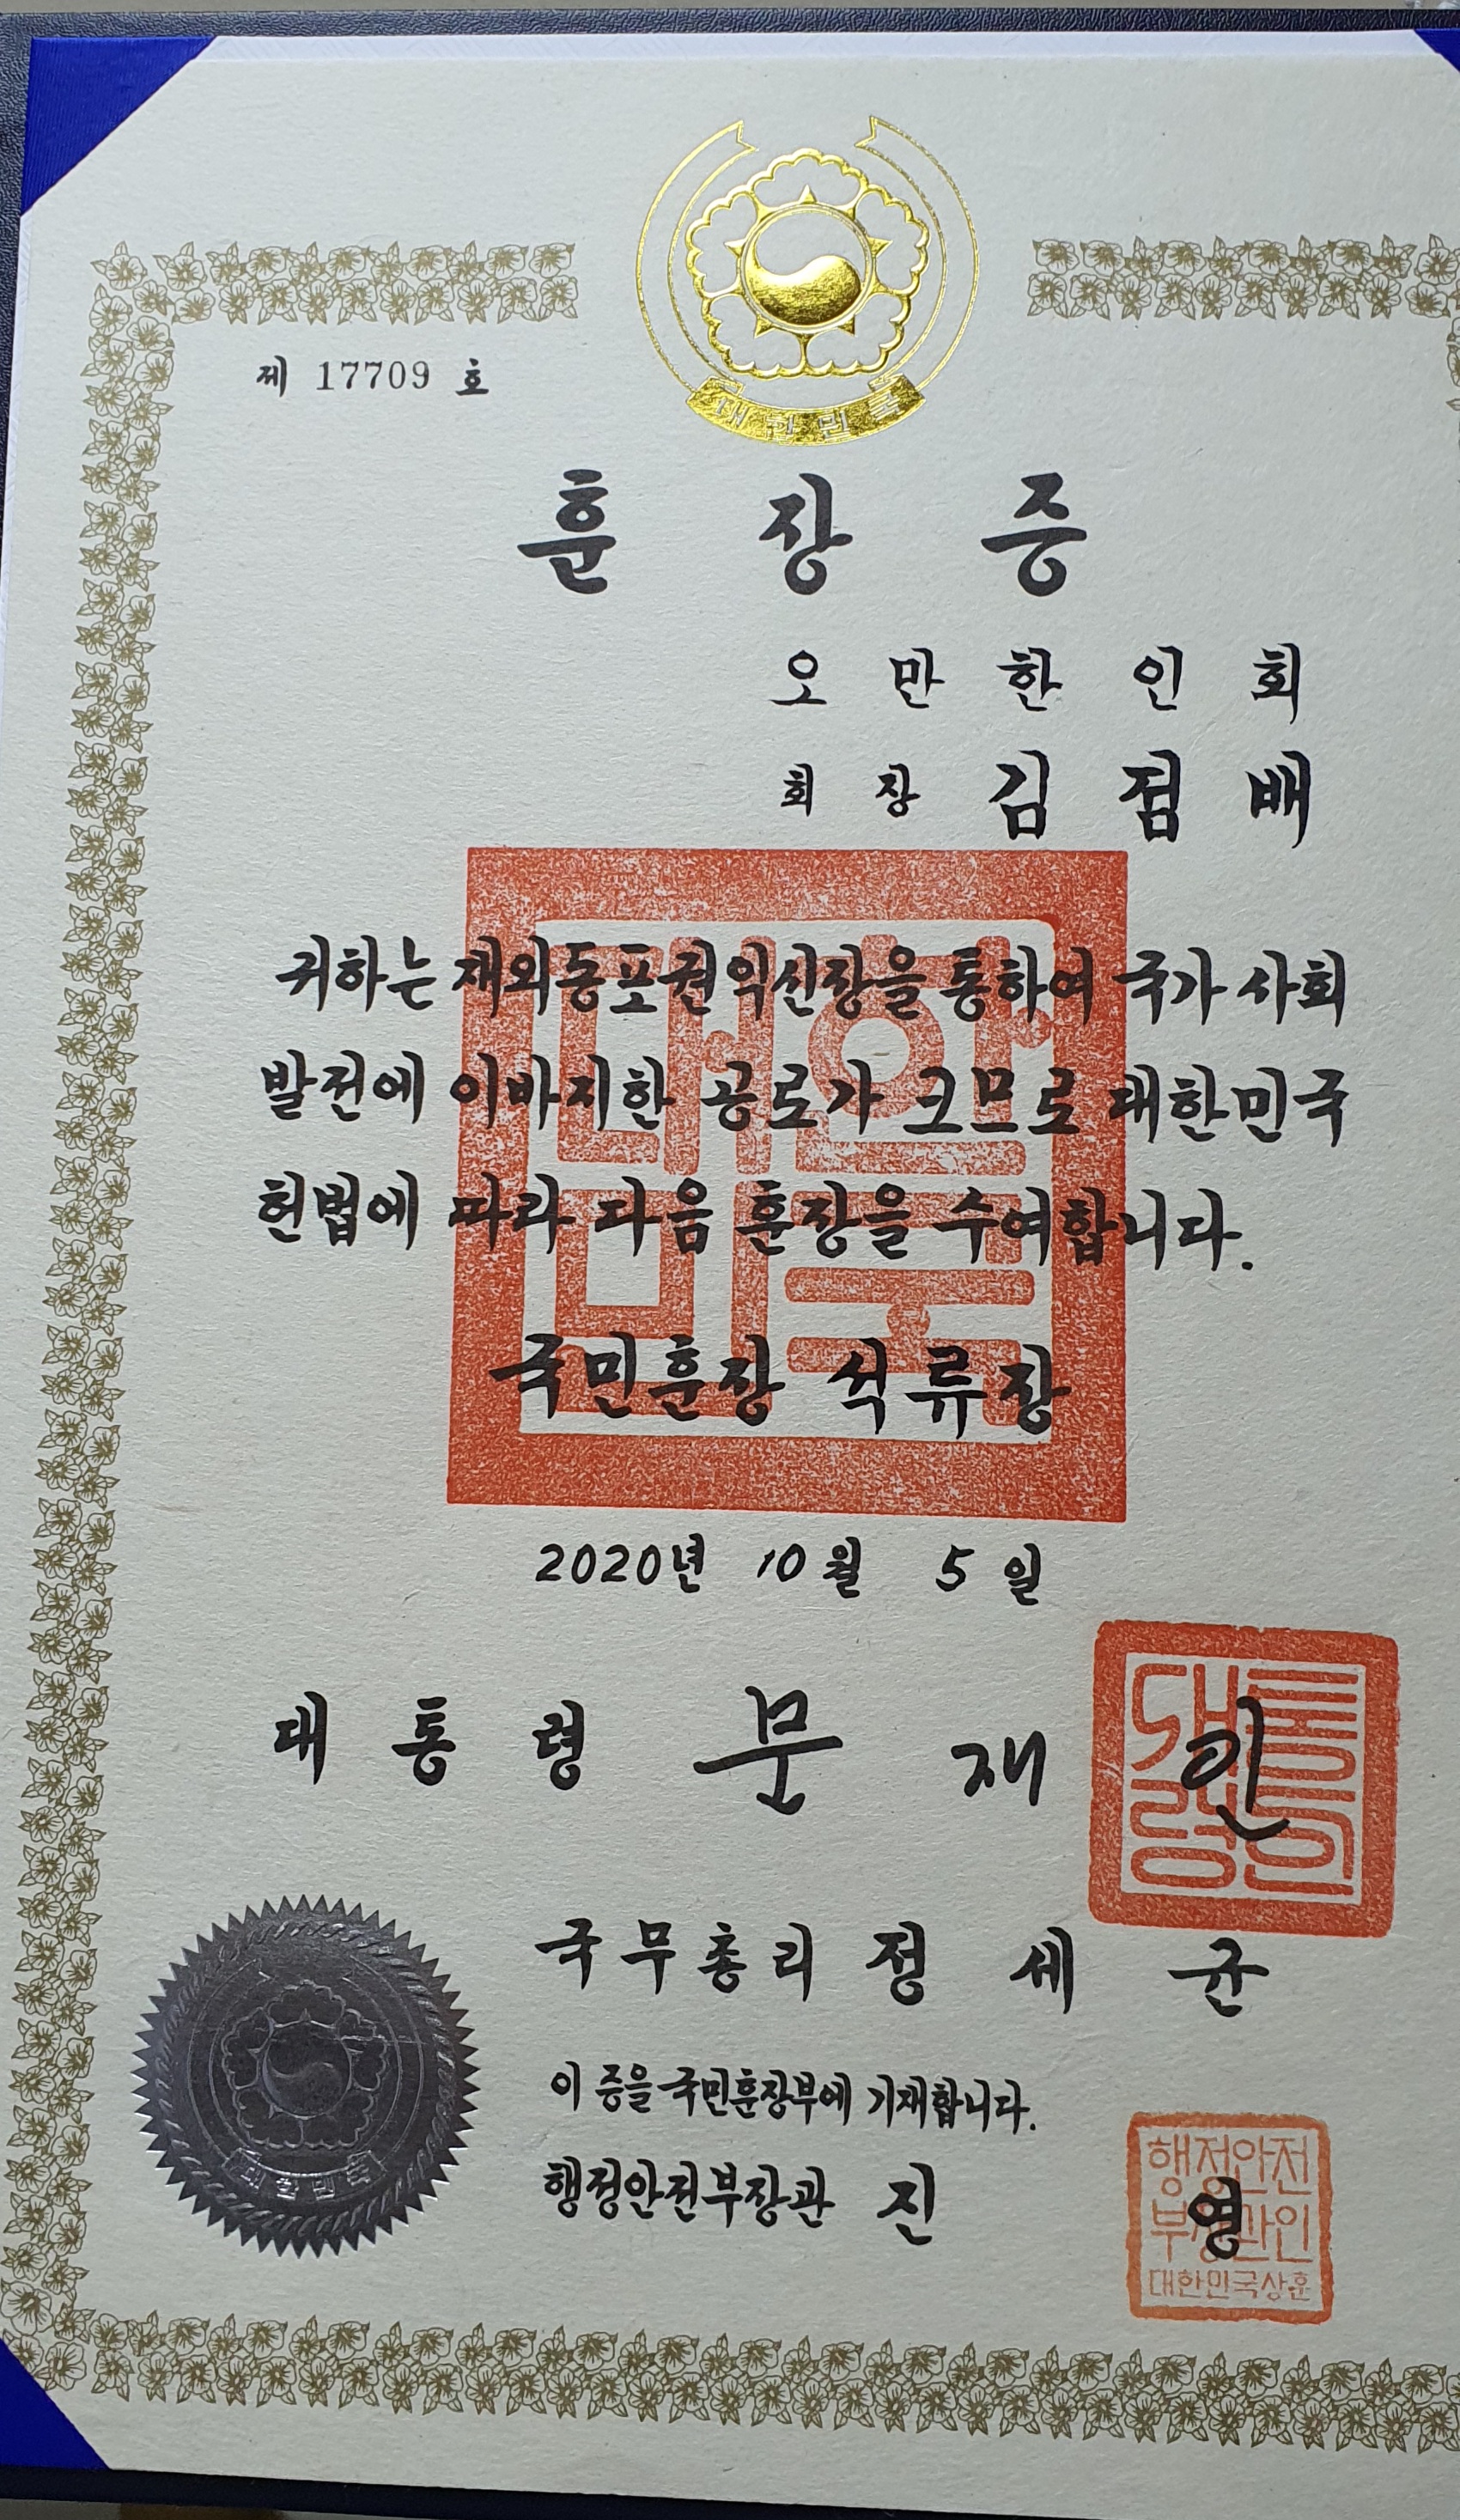 대한민국
제 17709 호
훈 장 증
오 만 한 인 회
회 장 김 점 배
귀하는 재외동포권익신장을 통하여 국가 사회
발전에 이바지한 공로가 크므로 대한민국
헌법에 따라 다음 훈장을 수여합니다.
대한
민국
국민훈장 석류장
2020년 10월 5일
대 통 령 문 재 인
대통
령인
국무총리 정 세 균
이 증을 국민훈장부에 기재합니다.
대한민국
행정안전부장관 진 영
행정안전
부장관인
대한민국상훈